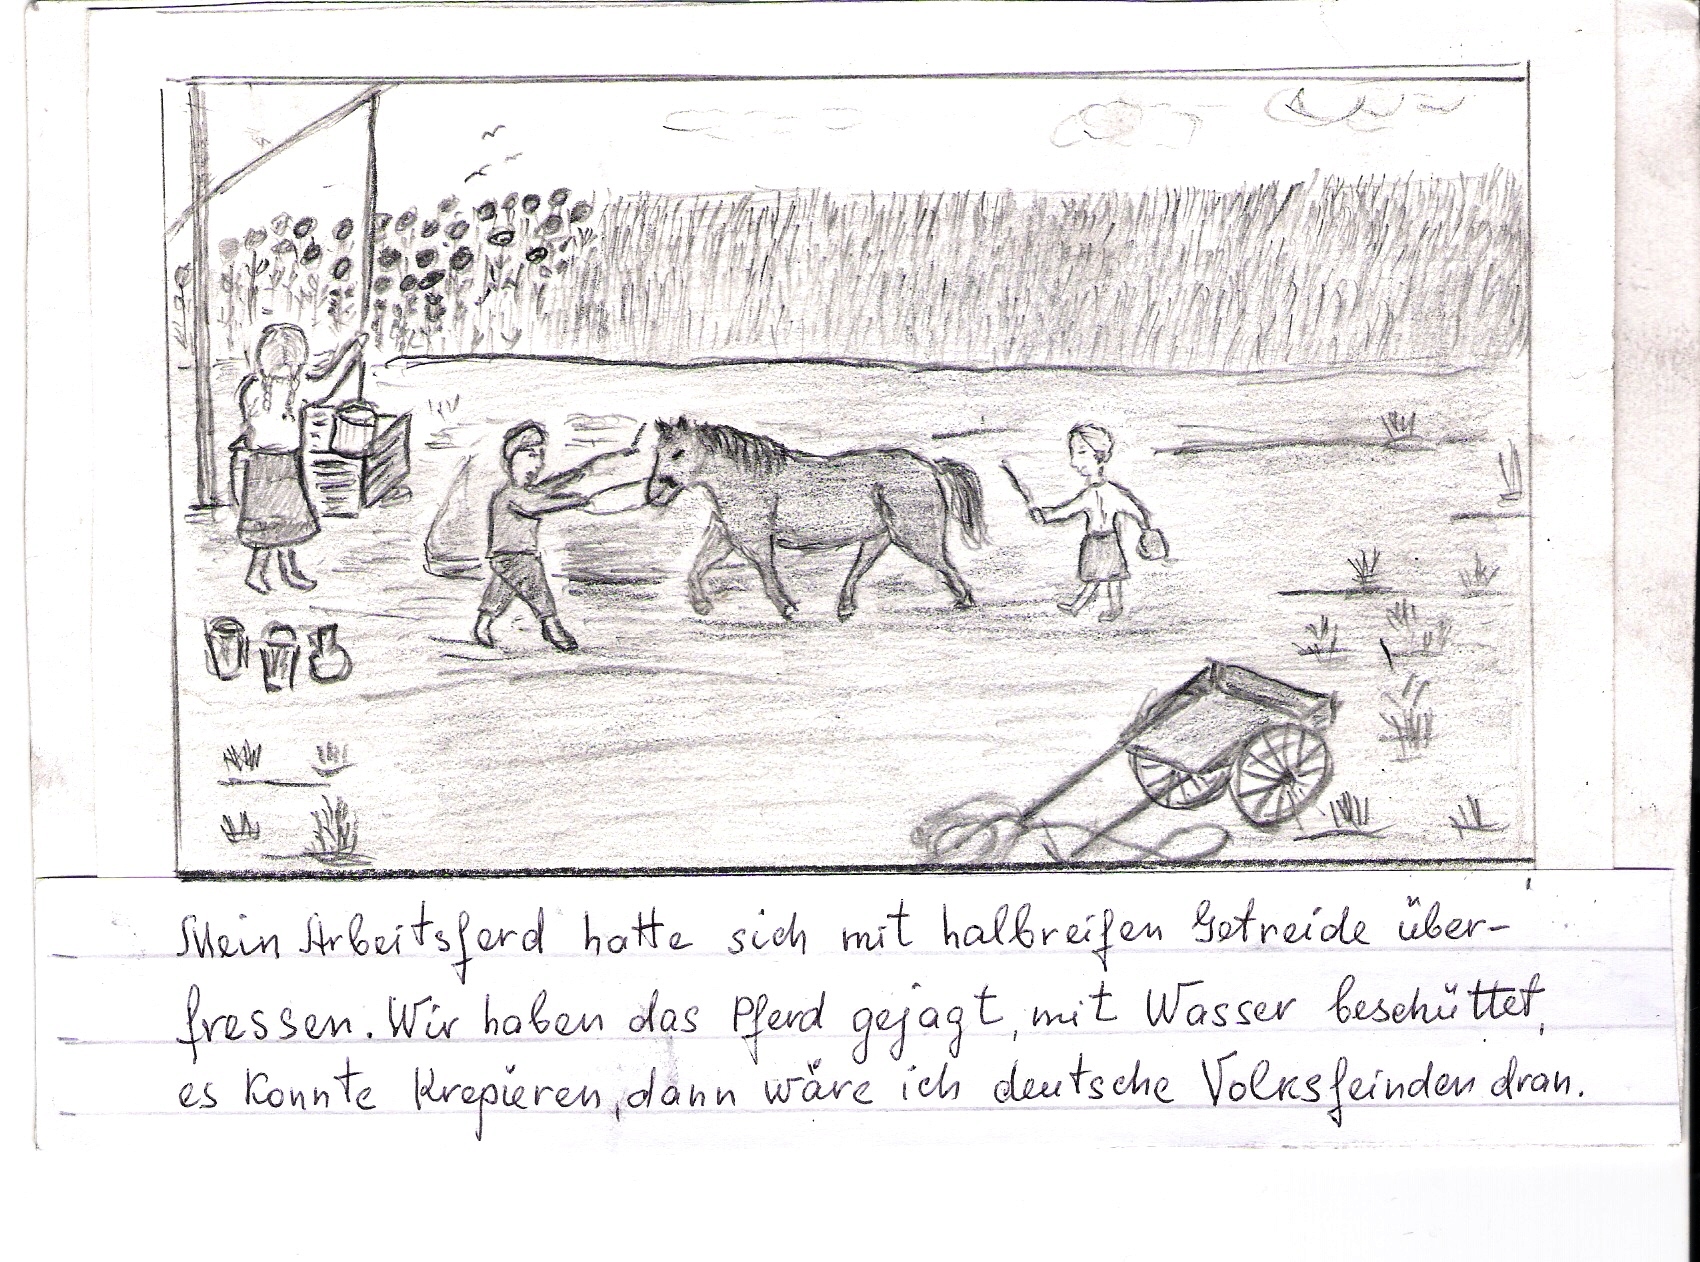 Mein Arbeitsferd hatte sich mit halbreifen Getreide über-
fressen. Wir haben das Pferd gejagt, mit Wasser beschüttet,
es konnte krepieren, dann wäre ich deutsche Volksfeinden dran.